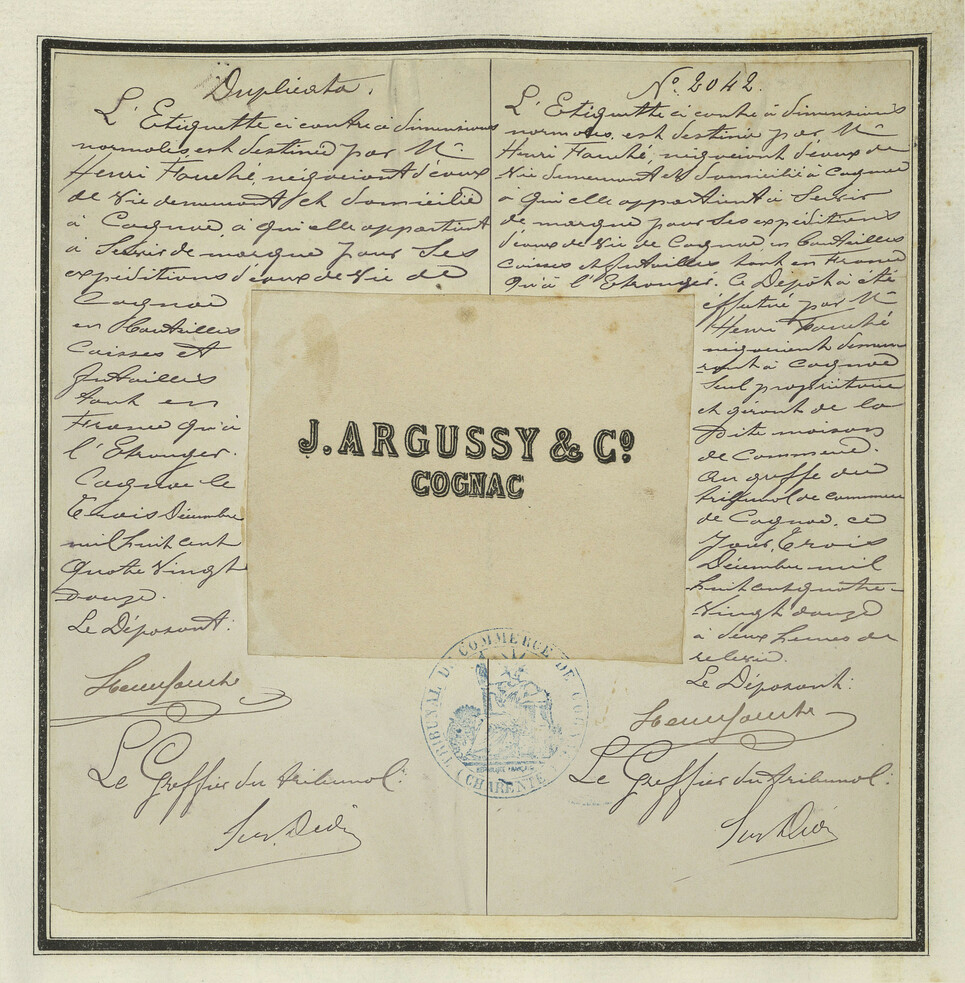 Duplicata.
L'Etiquette ci contre à dimensions
normales est destinée par Mr
Henri Fouché, négociant d'eaux
de Vie demeurant et domicilié
à Cognac, à qui elle appartient
à Servir de marque pour Ses
expéditions d'eaux de Vie de
Cognac
en Bouteilles
Caisses et
futailles
tant en
France qu'à
l'Etranger.
Cognac le
Trois Décembre
mil huit cent
Quatre Vingt
douze.
Le Déposant:
Le Greffier du tribunal:
No. 2042.
L'Etiquette ci contre à dimensions
normales, est destinée par Mr
Henri Fouché, négociant d'eaux de
Vie demeurant et domicilié à Cognac
à qui elle appartient à Servir
de marque pour Ses expéditions
d'eaux de Vie de Cognac, en bouteilles
caisses et futailles tant en France
qu'à l'Etranger. Ce Dépôt a été
effectué par Mr
Henri Fouché
négociant demeu
rant à Cognac
Seul propriétaire
et gérant de la
dite maison
de Commerce.
Au greffe du
tribunal de commerce
de Cognac, ce
Jour, Trois
Décembre mil
huit cent quatre-
Vingt douze
à deux heures de
relevée.
Le Déposant:
Le Greffier du tribunal:
J. ARGUSSY & Co.
COGNAC
TRIBUNAL DE COMMERCE DE COGNAC
(CHARENTE)